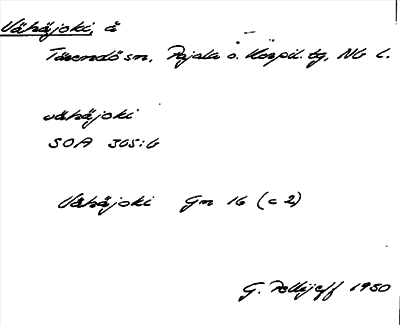 Vähäjoki, å
Tärendö sn, Pajala o. Korpil. tg, Nb l.
vähäjoki
SOA 365:6
Vähäjoki Gn 16 (c 2)
G. Pellijeff 1980